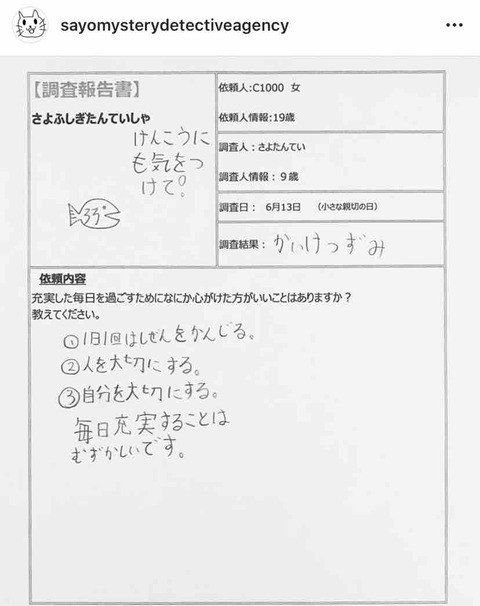 sayomysterydetectiveagency
【調査報告書】
さよふしぎたんていしゃ
けんこうに
も気をつ
けて!
33
依頼人:C1000 女
依頼人情報:19歳
調査人:さよたんてい
調査人情報:9歳
調査日: 6月13日 (小さな親切の日)
調査結果: かいけつずみ
依頼内容
充実した毎日を過ごすためになにか心がけた方がいいことはありますか?
教えてください。
①1日1回はしぜんをかんじる。
②人を大切にする。
③自分を大切にする。
毎日充実することは
むずかしいです。